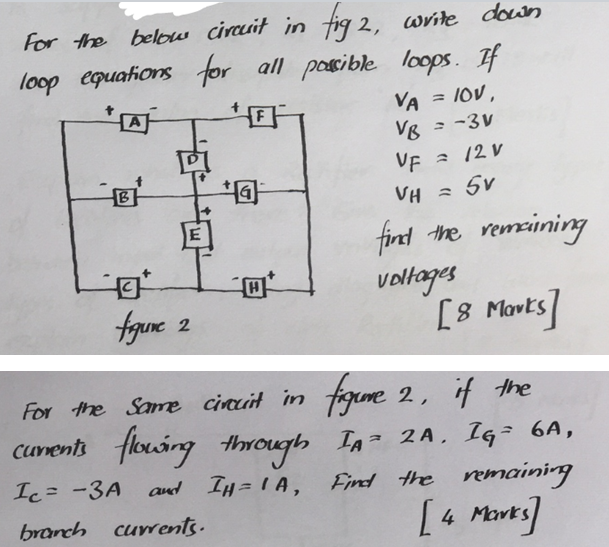 For the below circuit in fig 2, write down
loop equations for all possible loops. If
VA = 10V,
VB = -3V
VF = 12 V
VH = 5V
find the remaining
voltages
[8 Marks]
+ A -
+ F -
- D +
- B +
+ G -
+ E -
- C +
- H +
figure 2
For the Same circuit in figure 2, if the
currents flowing through IA = 2A, IG = 6A,
IC = -3A and IH = 1A, Find the remaining
branch currents.
[4 Marks]